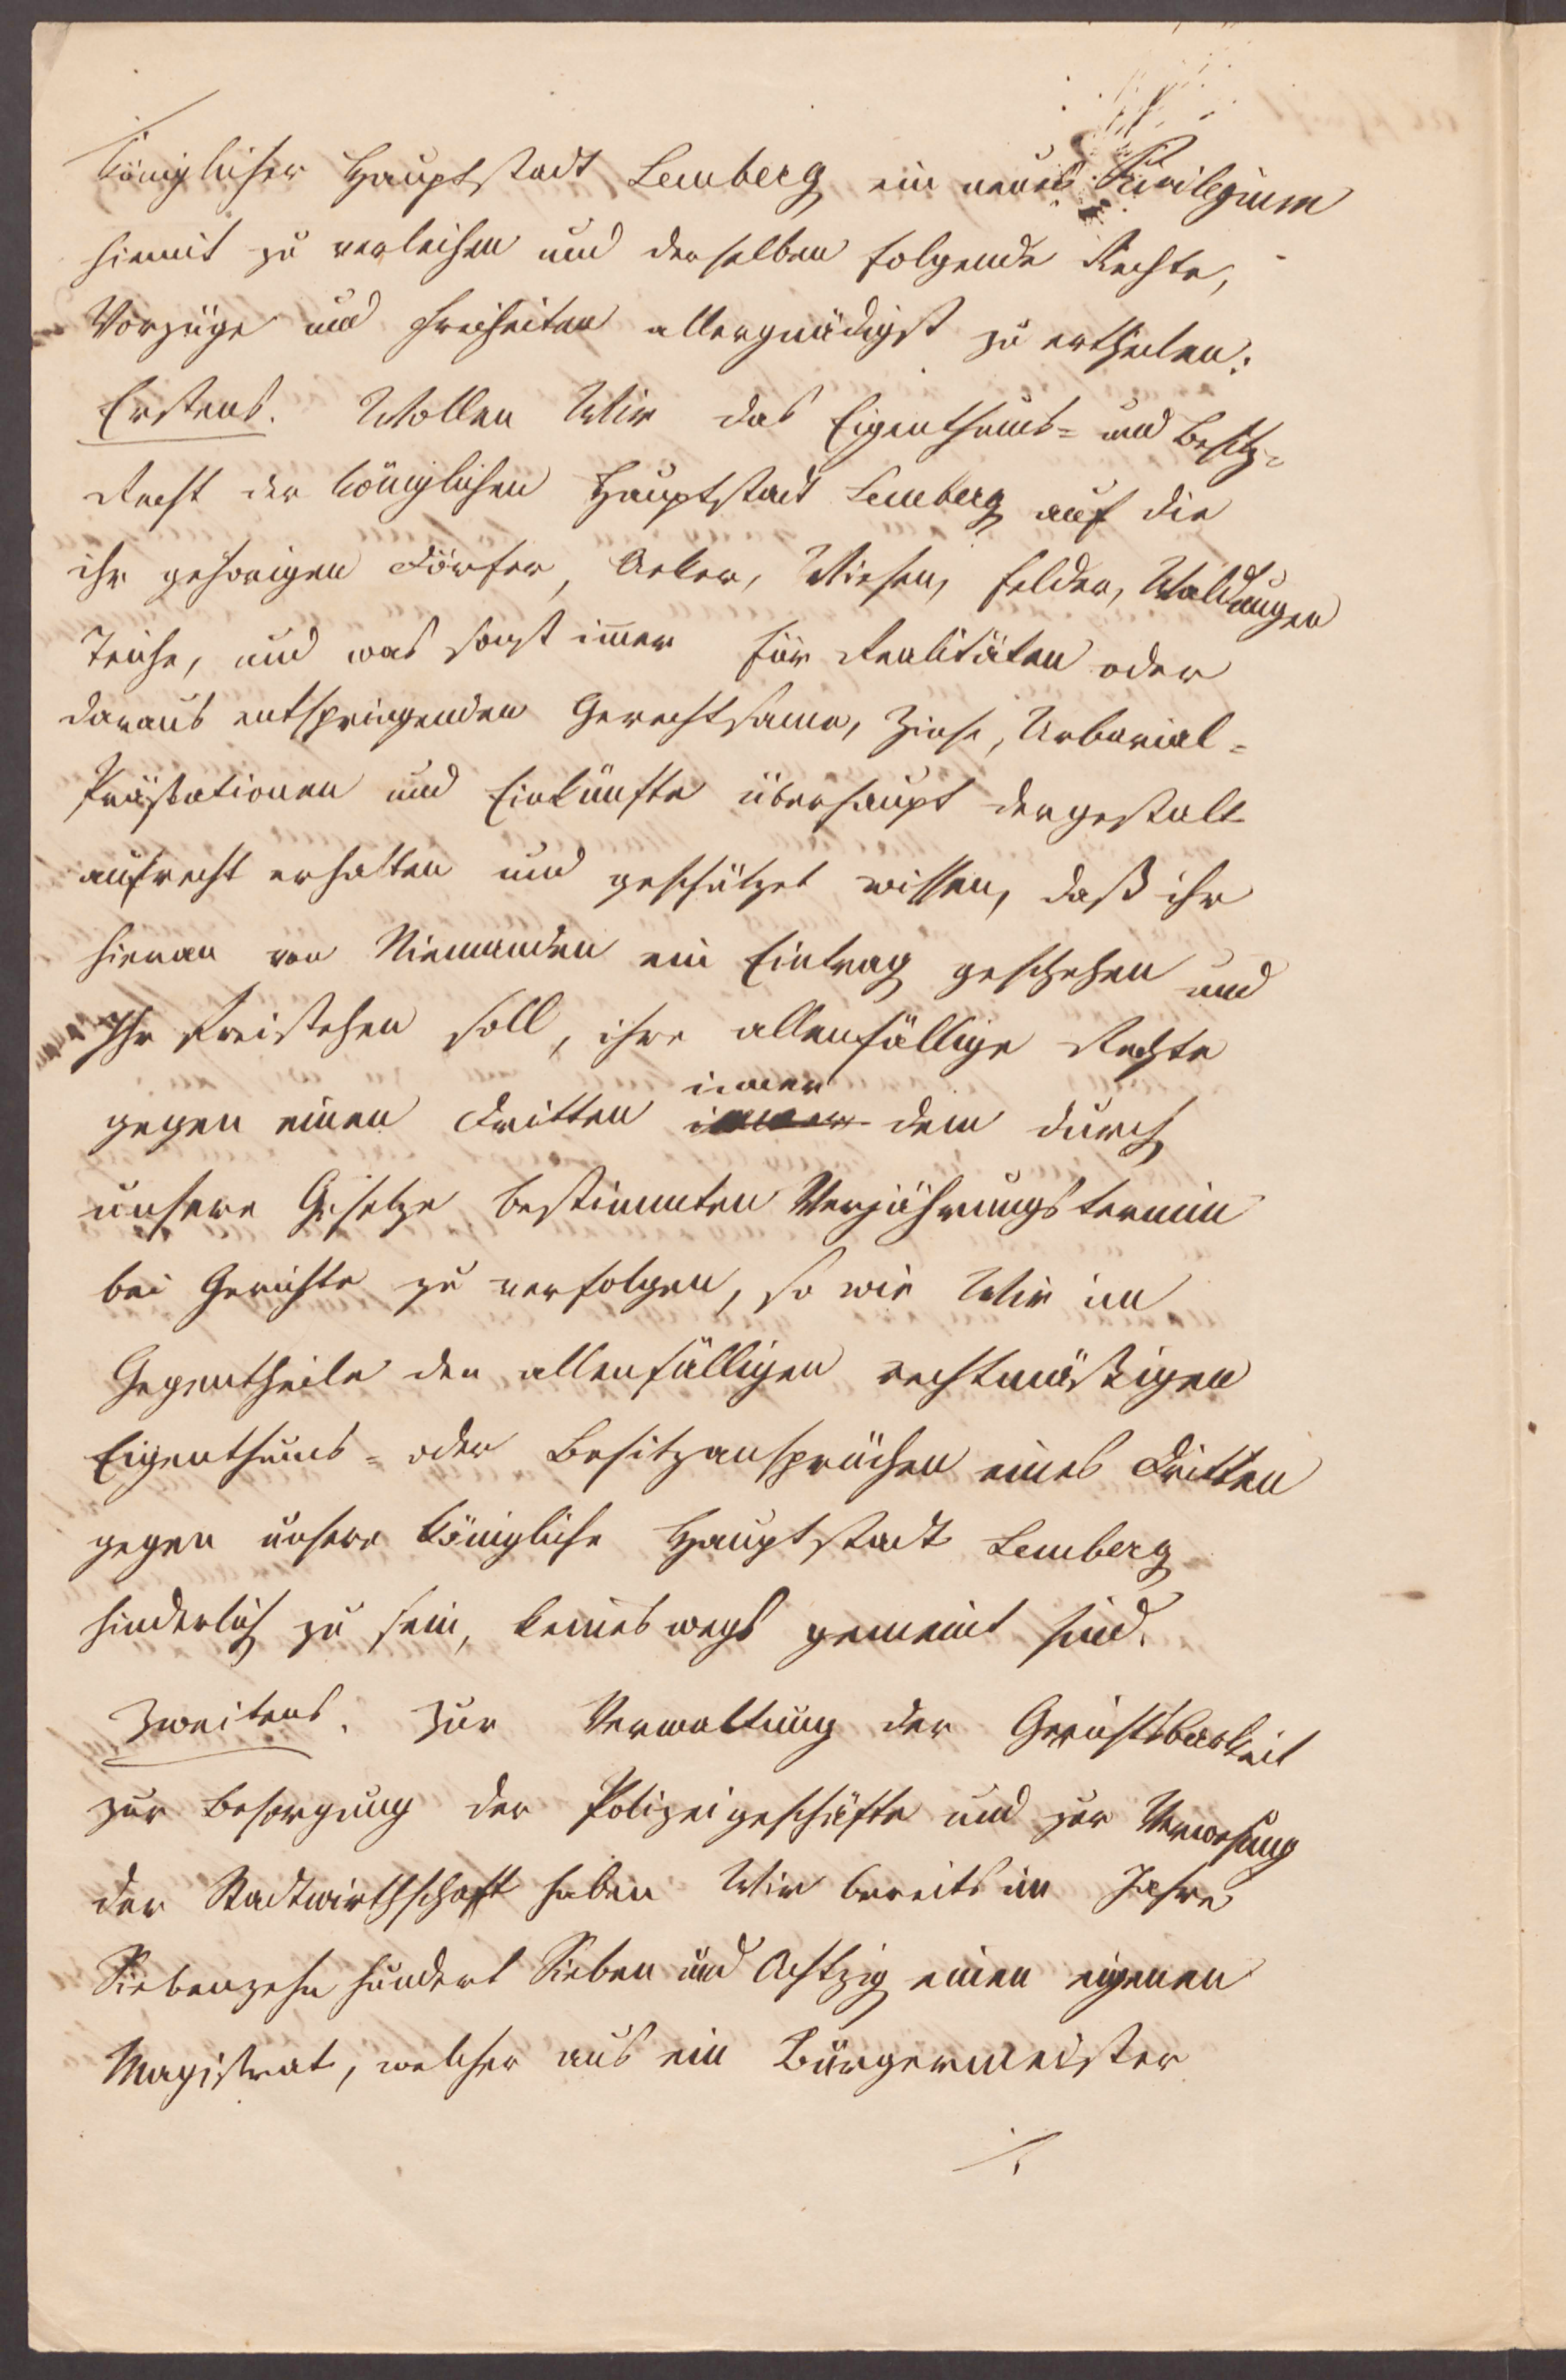 königlicher Hauptstadt Lemberg ein neues Privilegium
hiemit zu verleihen und derselben folgende Rechte,
Vorzüge und Freiheiten allergnädigst zu ertheilen:
Erstens. Wollen Wir das Eigenthums= und Besitz=
Recht der königlichen Hauptstadt Lemberg auf die
ihr gehörigen Dörfer, Aeker, Wiesen, Felder, Waldungen
Teiche, und was sonst immer für Realitäten oder
daraus entspringenden Gerechtsame, Zinse, Urbarial=
Prästationen und Einkünfte überhaupt dergestalt
aufrecht erhalten und geschützet wissen, daß ihr
hieran von Niemanden ein Eintrag geschehen und
Ihr freistehen soll, ihre allenfällige Rechte
gegen einen Dritten inner dem durch
unsere Gesetze bestimmten Verjährungstermin
bei Gerichte zu verfolgen, so wie Wir im
Gegentheile den allenfälligen rechtmäßigen
Eigenthums= oder Besitzansprüchen eines Dritten
gegen unsere königliche Hauptstadt Lemberg
hinderlich zu sein, keineswegs gemeint sind.
Zweitens. Zur Verwaltung der Gerichtsbarkeit
zur Besorgung der Polizeigeschäfte und zur Verwesung
der Stadtwirthschaft haben Wir bereits im Jahre
Siebenzehn hundert Sieben und Achtzig einen eigenen
Magistrat, welcher aus ein Bürgermeister
./.